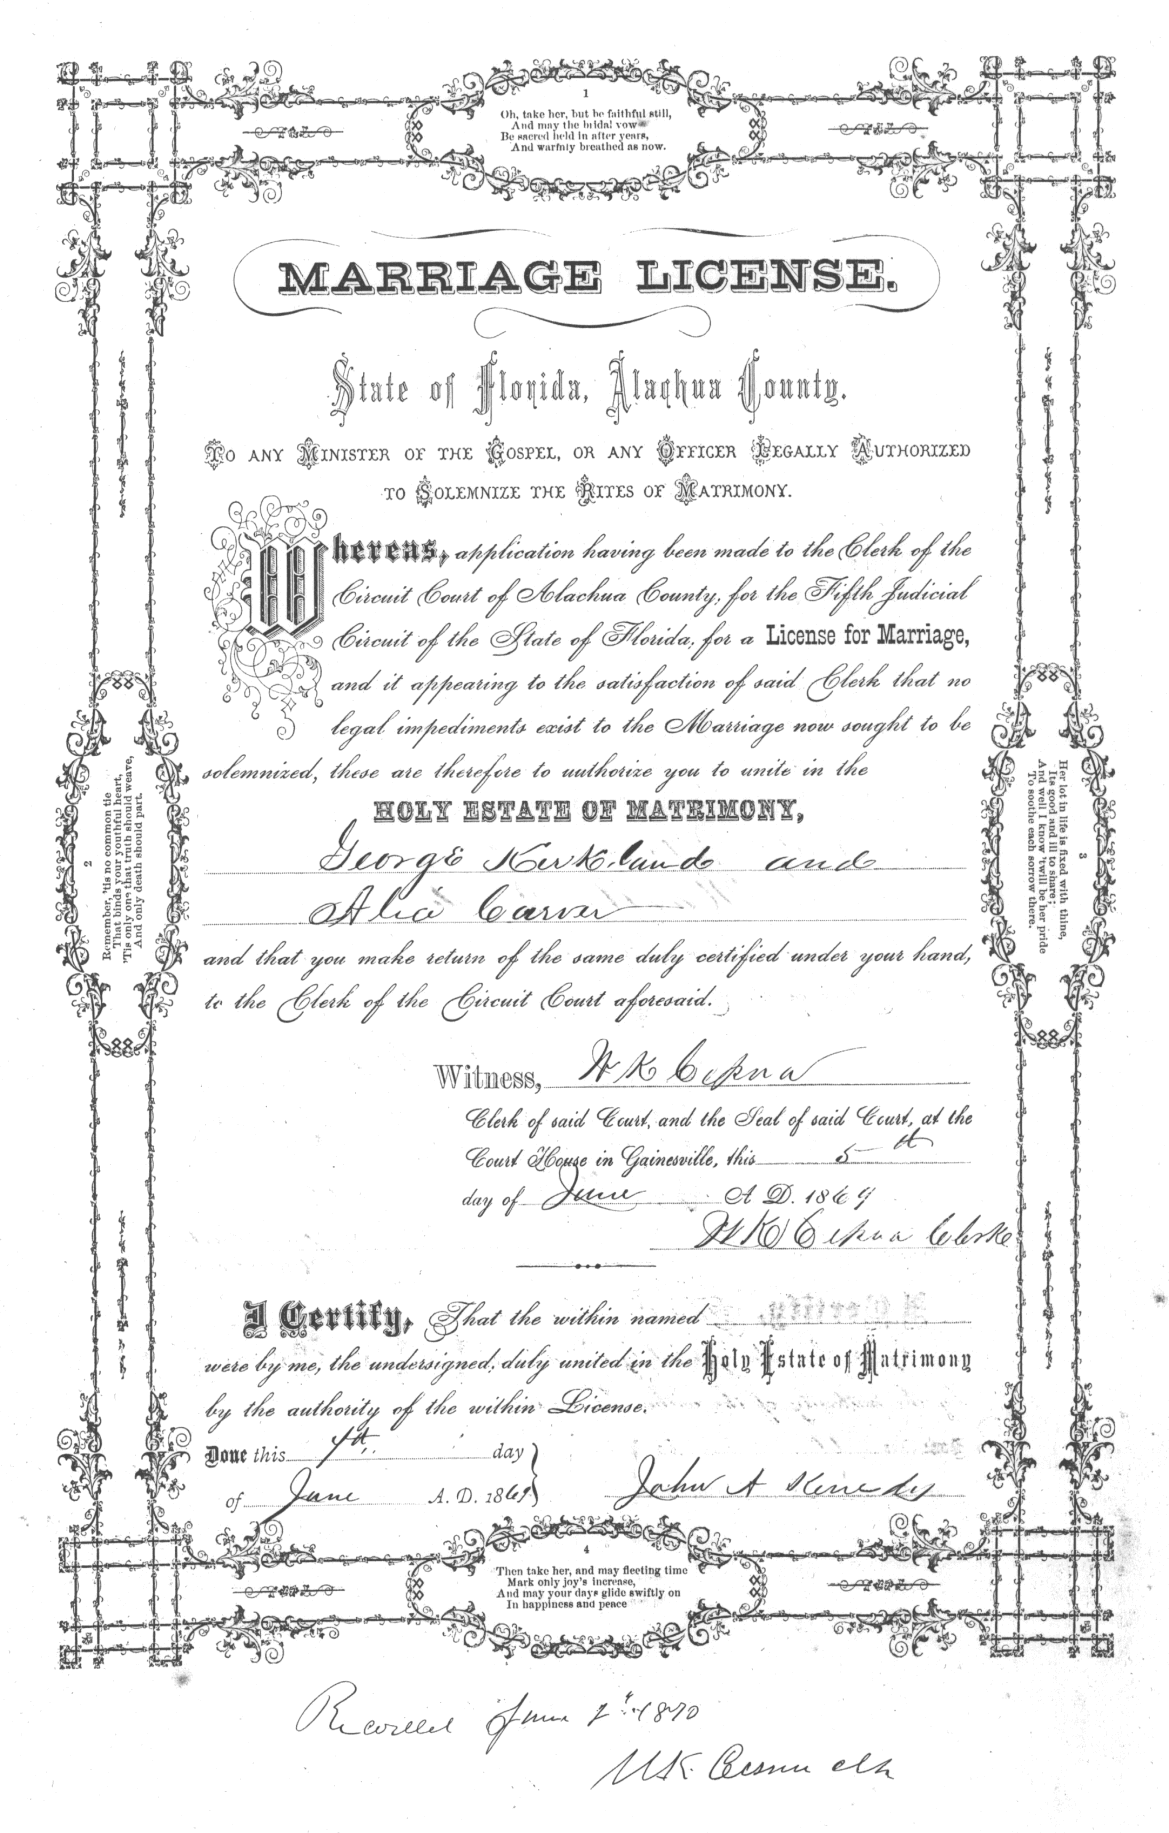 1
Oh, take her, but be faithful still,
And may the bridal vow
Be sacred held in after years,
And warmly breathed as now.
MARRIAGE LICENSE.
State of Florida, Alachua County.
TO ANY MINISTER OF THE GOSPEL, OR ANY OFFICER LEGALLY AUTHORIZED
TO SOLEMNIZE THE RITES OF MATRIMONY.
Whereas, application having been made to the Clerk of the
Circuit Court of Alachua County, for the Fifth Judicial
Circuit of the State of Florida, for a License for Marriage,
and it appearing to the satisfaction of said Clerk that no
legal impediments exist to the Marriage now sought to be
solemnized, these are therefore to authorize you to unite in the
HOLY ESTATE OF MATRIMONY,
George Kirkland and
Alia Carver
and that you make return of the same duly certified under your hand,
to the Clerk of the Circuit Court aforesaid.
Witness, W K Cessna
Clerk of said Court, and the Seal of said Court, at the
Court House in Gainesville, this 5th
day of June A D. 1869
W K Cessna Clerk
I Certify, That the within named
were by me, the undersigned, duly united in the Holy Estate of Matrimony
by the authority of the within License.
Done this day
of June A. D. 1869
John A Kennedy
2
Remember, 'tis no common tie
That binds your youthful heart,
'Tis only one that truth should weave,
And only death should part.
3
Her lot in life is fixed with thine,
Its good and ill to share;
And well I know 'twill be her pride
To soothe each sorrow there.
4
Then take her, and may fleeting time
Mark only joy's increase,
And may your days glide swiftly on
In happiness and peace
Recorded 1870
W K Cessna clk